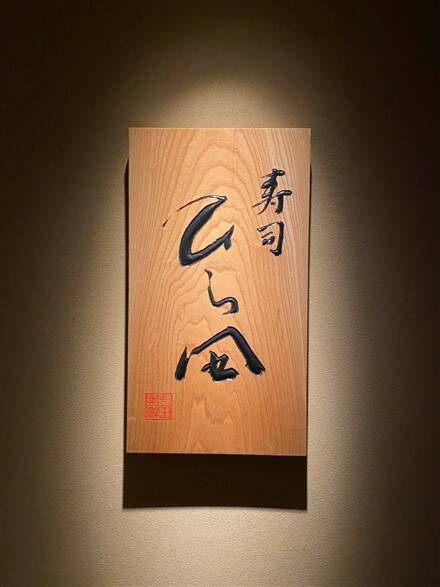 寿司
ひら田